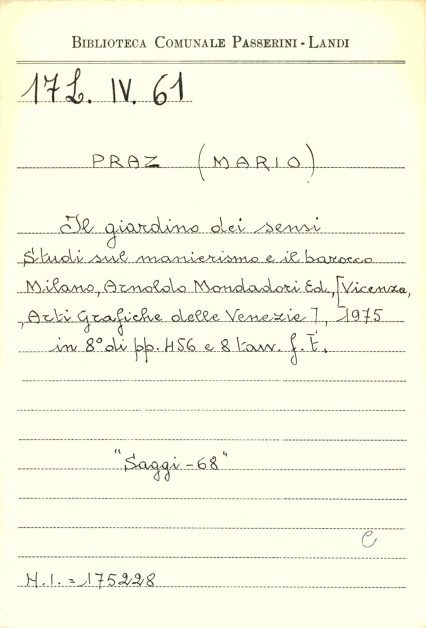 BIBLIOTECA COMUNALE PASSERINI - LANDI
17L. IV. 61
PRAZ (MARIO)
Il giardino dei sensi
Studi sul manierismo e il barocco
Milano, Arnoldo Mondadori Ed., [Vicenza,
, Arti Grafiche delle Venezie], 1975
in 8° di pp. 456 e 8 tavv. f. t.
"Saggi - 68"
C
N.I. = 175228